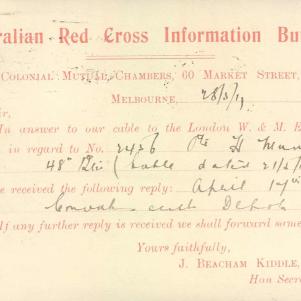 ralian Red Cross Information Bu
COLONIAL MUTUAL CHAMBERS, 60 MARKET STREET,
MELBOURNE, 28/5/19
ir,
In answer to our cable to the London W. & M. E
in regard to No. 2426 Pte H
48th Bn (cable dated 21/5/
e received the following reply: April 17th
Convol. Depot
If any further reply is received we shall forward same
Yours faithfully,
J. BEACHAM KIDDLE,
Hon Secre